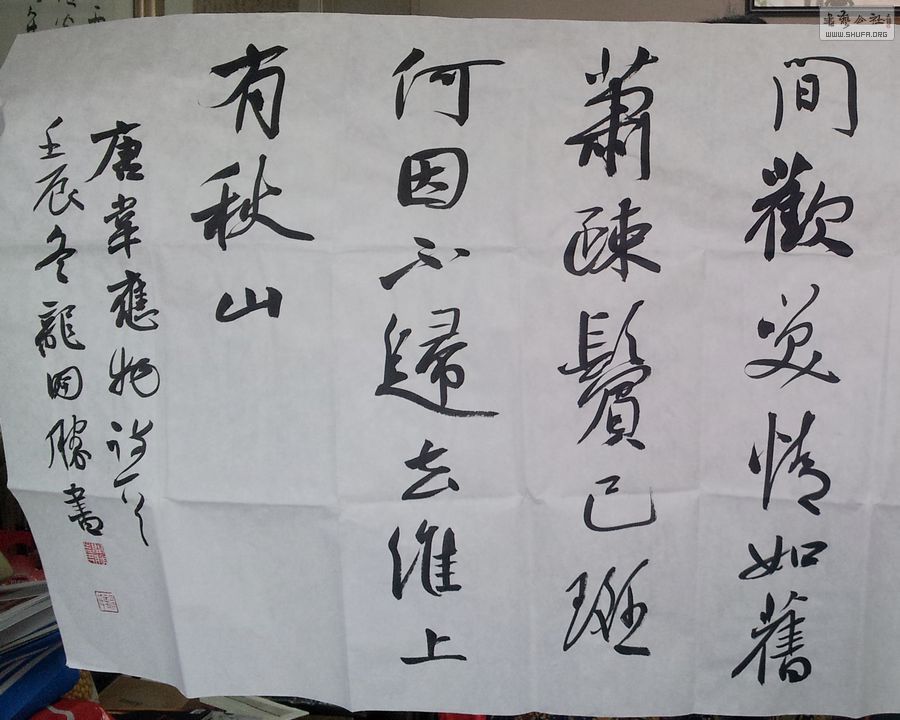 間歡笑情如舊
蕭疎鬢已斑
何因不歸去淮上
有秋山
唐韋應物詩一首
壬辰冬龍国勝書
書藝公社
WWW.SHUFA.ORG